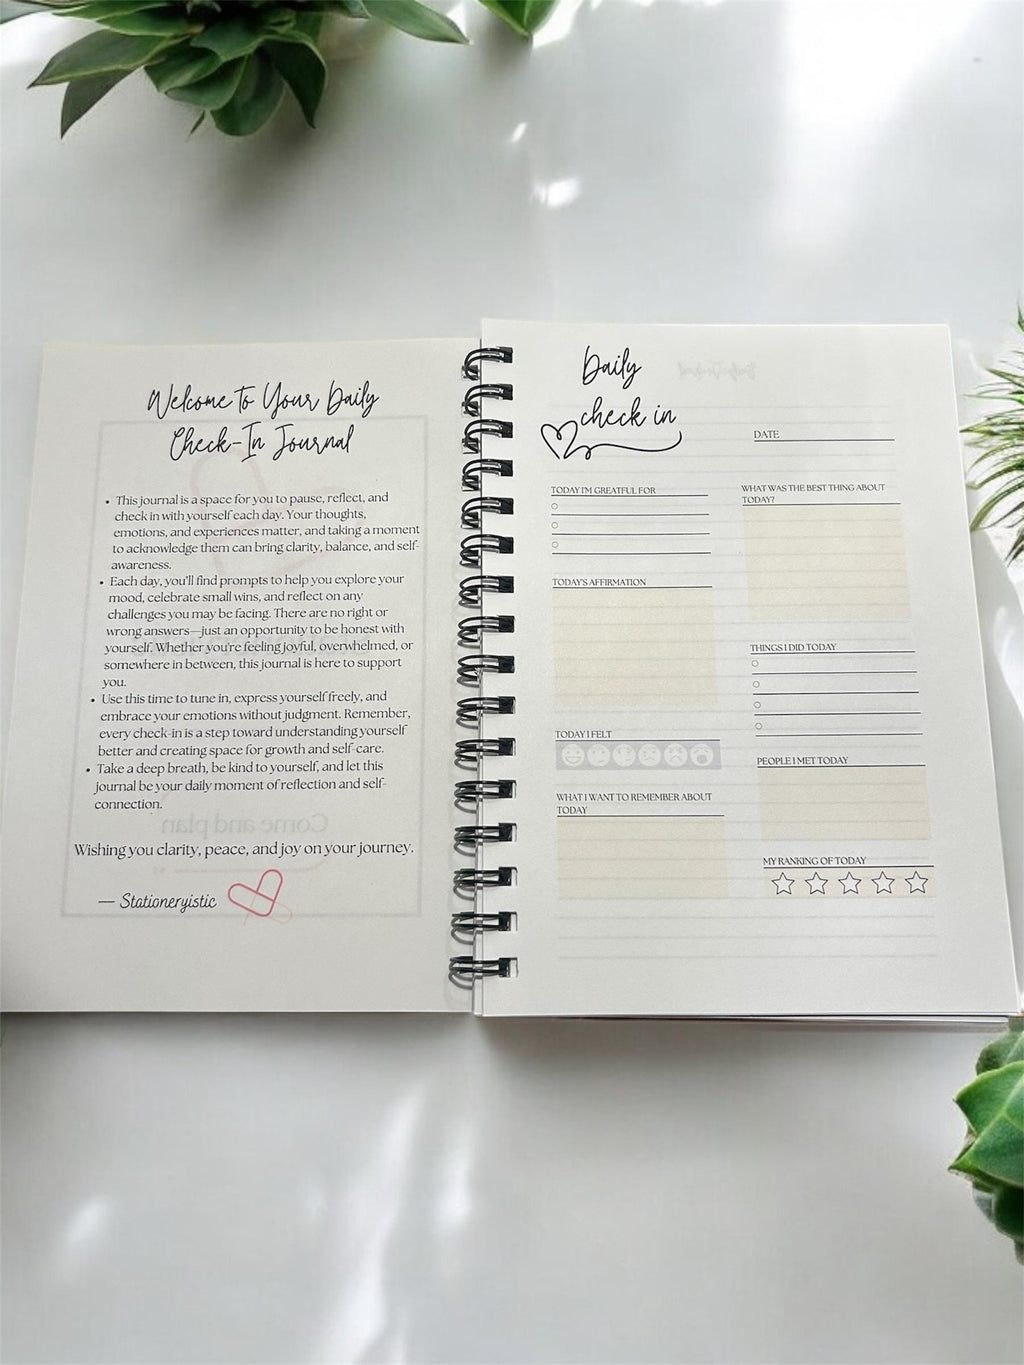 Welcome To Your Daily
Check-In Journal
• This journal is a space for you to pause, reflect, and
check in with yourself each day. Your thoughts,
emotions, and experiences matter, and taking a moment
to acknowledge them can bring clarity, balance, and self-
awareness.
• Each day, you'll find prompts to help you explore your
mood, celebrate small wins, and reflect on any
challenges you may be facing. There are no right or
wrong answers—just an opportunity to be honest with
yourself. Whether you're feeling joyful, overwhelmed, or
somewhere in between, this journal is here to support
you.
• Use this time to tune in, express yourself freely, and
embrace your emotions without judgment. Remember,
every check-in is a step toward understanding yourself
better and creating space for growth and self-care.
• Take a deep breath, be kind to yourself, and let this
journal be your daily moment of reflection and self-
connection.
Come and plan
Wishing you clarity, peace, and joy on your journey.
— Stationeryistic
Daily
check in
DATE
TODAY I'M GREATFUL FOR
TODAY'S AFFIRMATION
TODAY I FELT
WHAT I WANT TO REMEMBER ABOUT
TODAY
WHAT WAS THE BEST THING ABOUT
TODAY?
THINGS I DID TODAY
PEOPLE I MET TODAY
MY RANKING OF TODAY